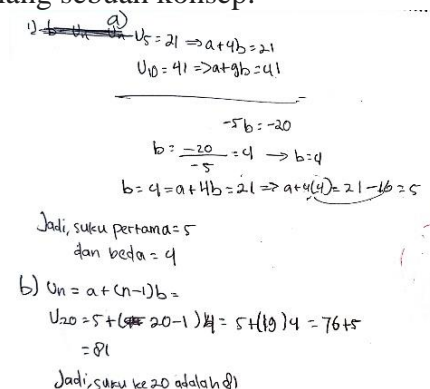 ang sebuah konsep.
1) a) U5 = 21 ⇒ a+4b = 21
U10 = 41 ⇒ a+9b = 41
-5b = -20
b = -20/-5 = 4 → b = 4
b = 4 = a + 4b = 21 ⇒ a+4(4) = 21 - 16 = 5
Jadi, suku pertama = 5
dan beda = 4
b) Un = a + (n-1) b =
U20 = 5 + (20-1) 4 = 5 + (19) 4 = 76+5
= 81
Jadi, suku ke 20 adalah 81